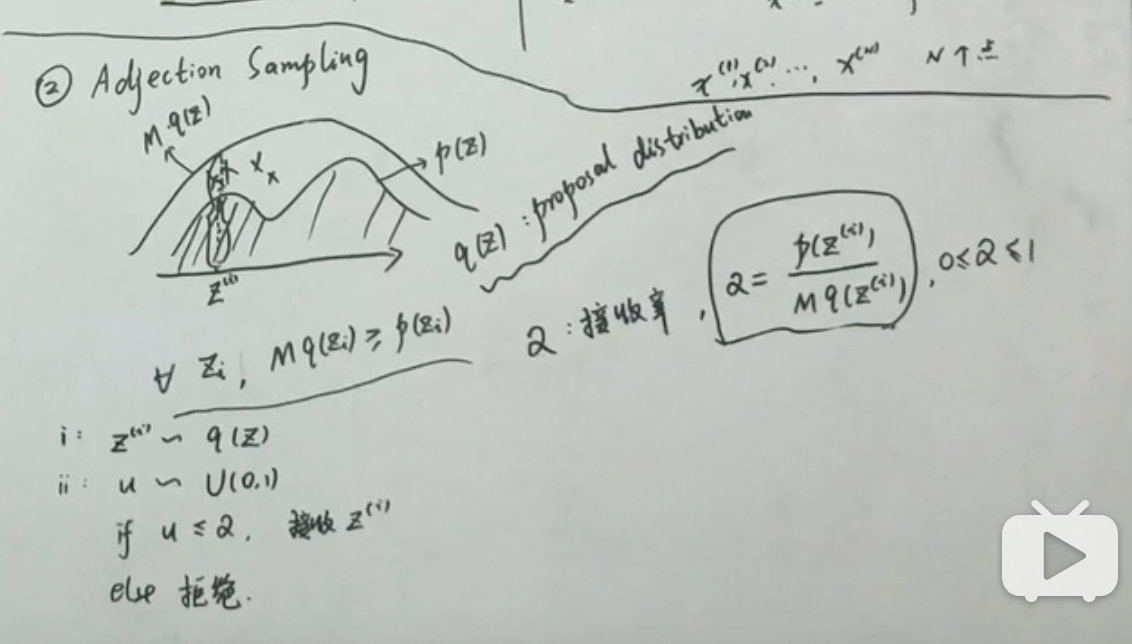 x⁽¹⁾, x⁽²⁾, ⋯, x⁽ᴺ⁾ N个点
② Adjection Sampling
M·q(z)
p(z)
z⁽ⁱ⁾
q(z):proposal distribution
∀ zi, Mq(zi) ≥ p(zi)
α:接收率, α = p(z⁽ⁱ⁾) / Mq(z⁽ⁱ⁾), 0≤α≤1
i: z⁽ⁱ⁾ ∽ q(z)
ii: u ∽ U(0,1)
if u ≤ α, 接收 z⁽ⁱ⁾
else 拒绝.